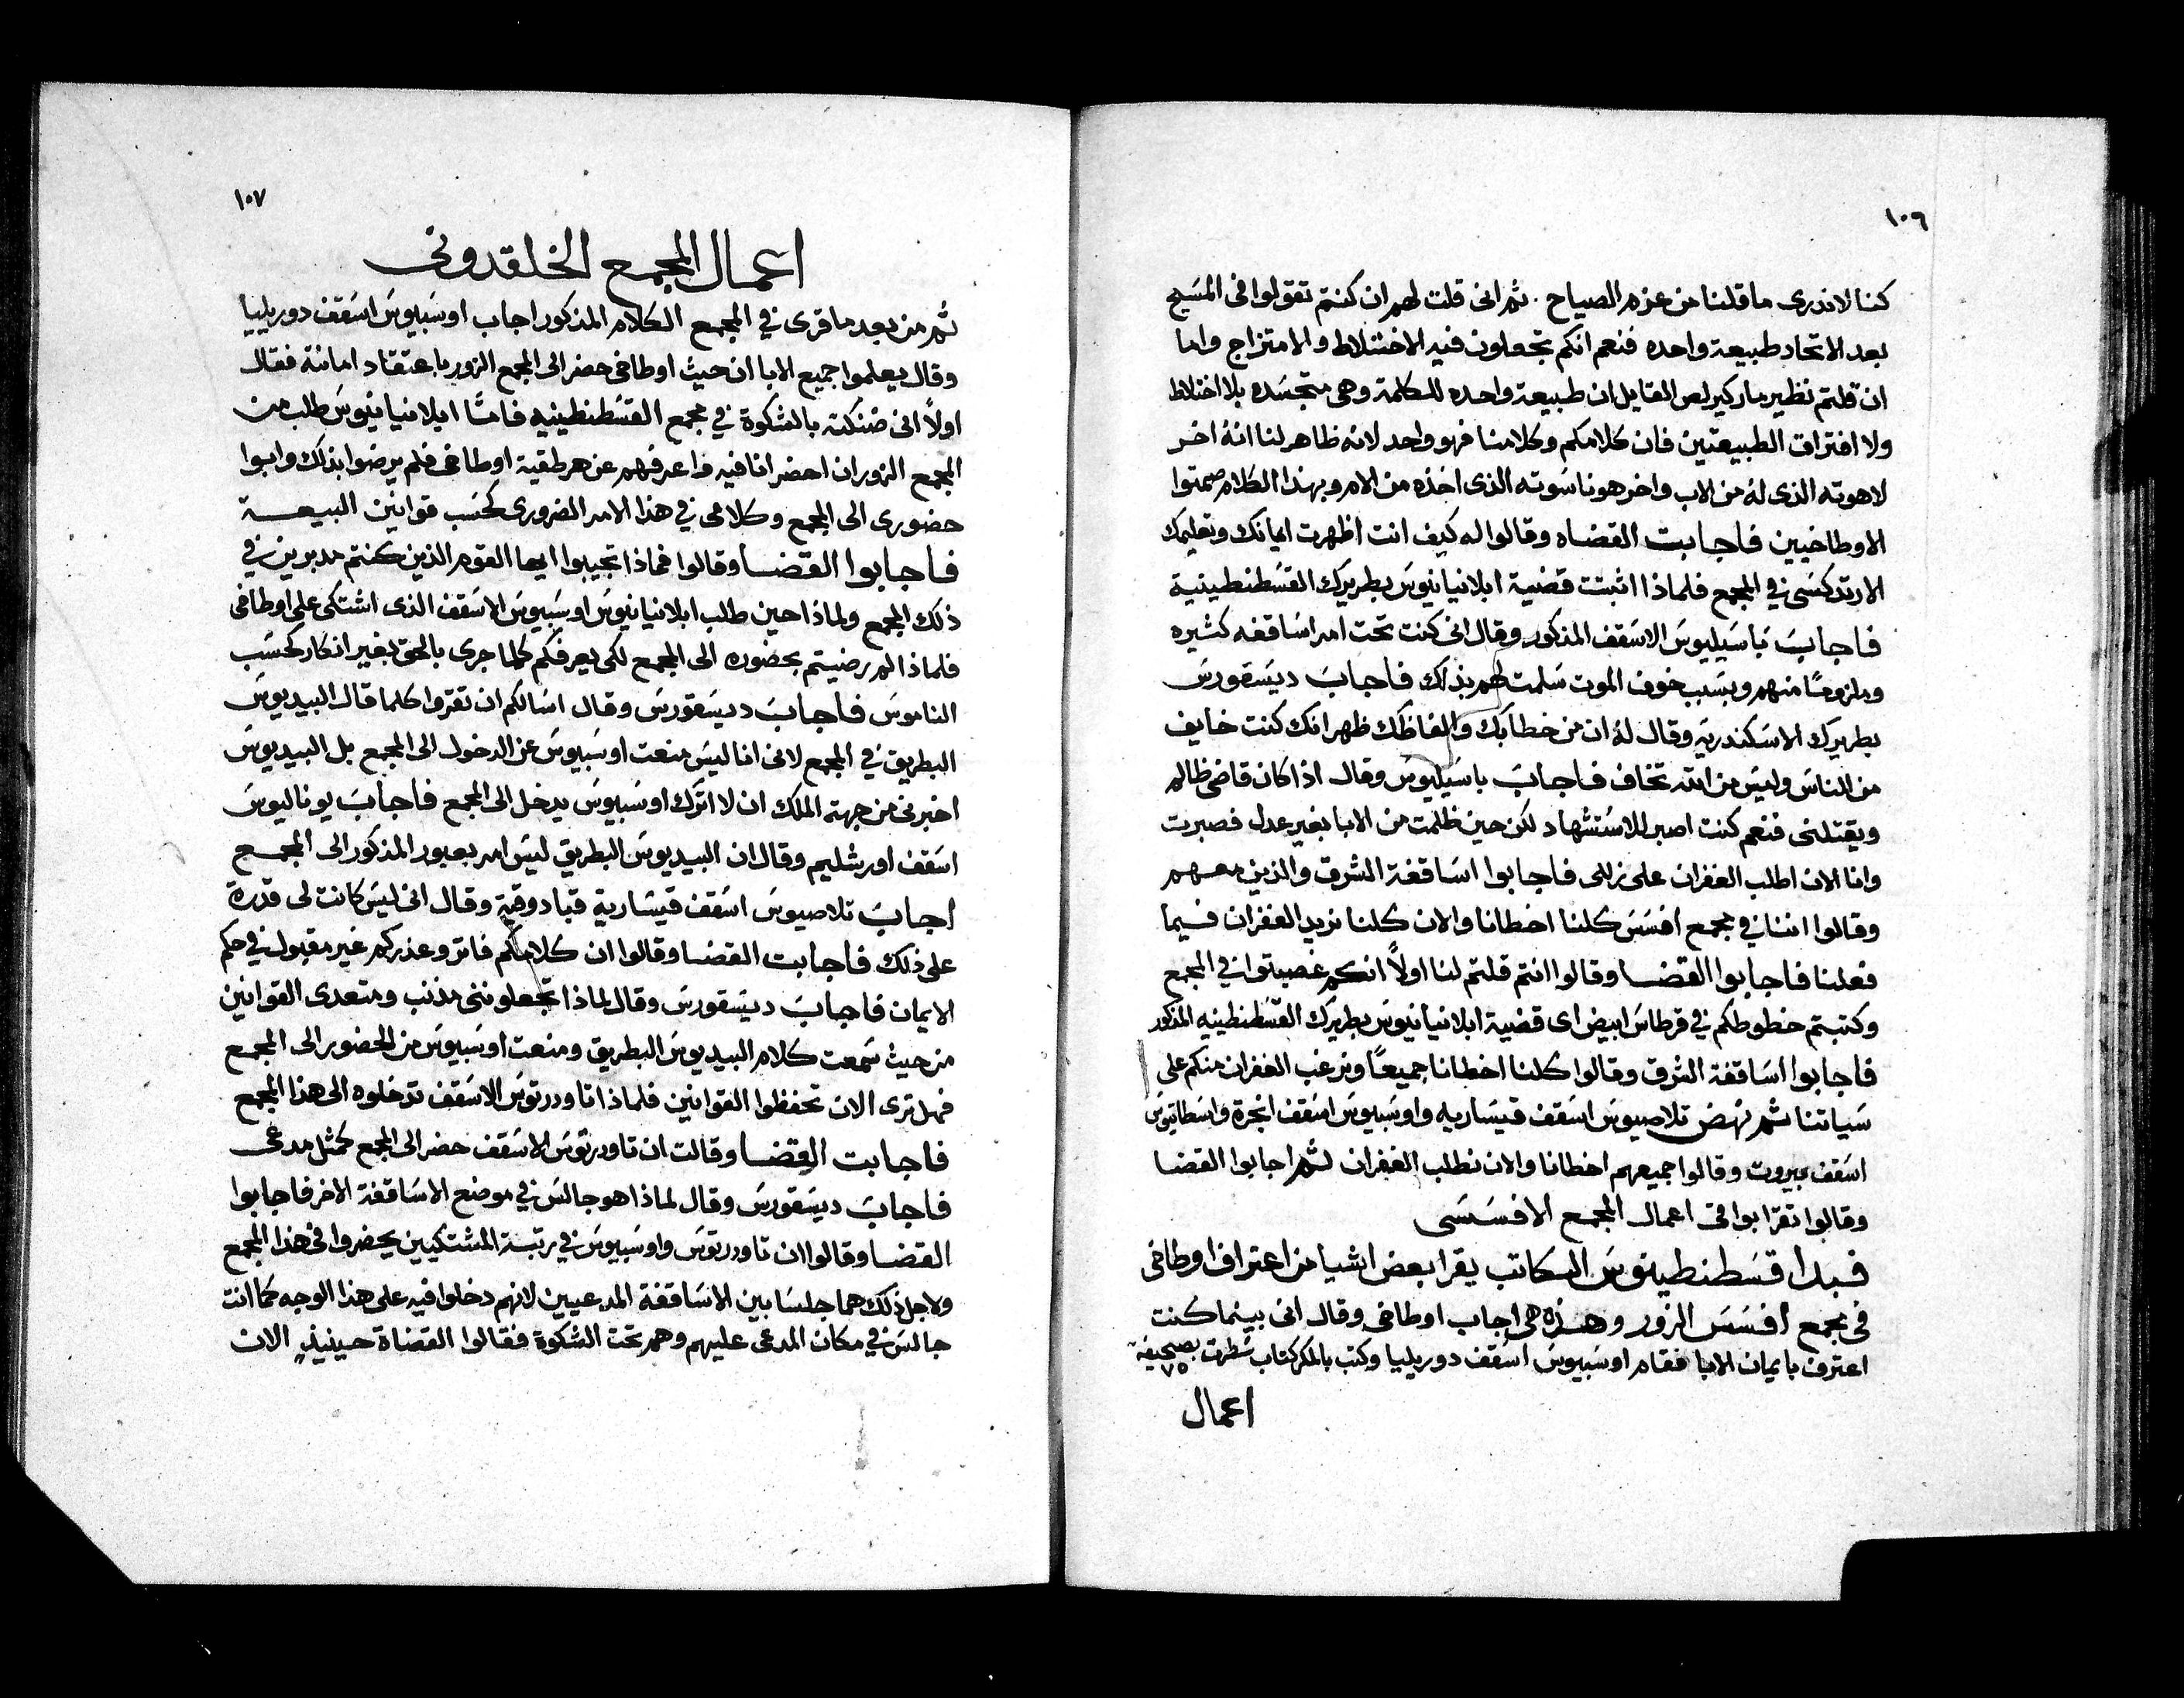 ١٠٦
كنا لا ندرى ما قلنا من عزم الصياح . ثم انى قلت لهم ان كنتم تقولوا فى المسَيح
بعد الاتحاد طبيعة واحده فنعم انكم تجعلون فيه الاختلاط والامتزاج واما
ان قلتم نظير مار كيرلص القايل ان طبيعة واحده للكلمة وهى متجسَده بلا اختلاط
ولا افتراق الطبيعتين فان كلامكم وكلامنا فهو واحد لانه ظاهر لنا انهُ اخر
لاهوته الذى لهُ من الاب واخر هو ناسَوته الذى اخذه من الام وبهذا الكلام صمتوا
الاوطاخيين فاجابت القضاه وقالوا له كيف انت اظهرت ايمانك وتعليمك
الارتدكسَى في المجمع فلماذا اثبتت قضية ابلانيانيوسَ بطريرك القسَطنطينية
فاجابَ باسَيليوسَ الاسَقف المذكور وقال انى كنت تحت امر اسَاقفه كثيره
وملزومًا منهم وبسَبب خوف الموت سَلمت لهم بذلك فاجابَ ديسَقورسَ
بطريرك الاسَكندريه وقال لهُ ان من خطابك والفاظك ظهر انك كنت خايف
من الناسَ وليسَ من الله تخاف فاجابَ باسَيليوسَ وقال اذا كان قاضى ظالم
ويقتلنى فنعم كنت اصبر للاسَتشهاد لكن حين ظلمت من الابا بغير عدل فصبرت
وانا الان اطلب الغفران على زللى فاجابوا اسَاقفة الشرق والذين معهم
وقالوا اننا في مجمع افسَسَ كلنا اخطانا والان كلنا نريد الغفران فيما
فعلنا فاجابوا القضا وقالوا انتم قلتم لنا اولاً انكم غصبتوا في المجمع
وكتبتم خطوطكم في قرطاسَ ابيض اى قضية ابلانيانيوسَ بطريرك القسَطنطينيه المذكور
فاجابوا اسَاقفة الشرق وقالوا كلنا اخطانا جميعًا ونرغب الغفران منكم على
سَياتنا ثم نهض تلاصيوسَ اسَقف قيسَاريه واوسَبيوسَ اسَقف انجرة واسَطاتيوسَ
اسَقف بيروت وقالوا جميعهم اخطانا والان نطلب الغفران ثم اجابوا القضا
وقالوا تقرا بواقى اعمال المجمع الافسَسَى
فبدا قسَطنطينوسَ الكاتب يقرا بعض اشيا من اعتراف اوطاخى
فى مجمع افسَسَ الزور وهذه هى اجاب اوطاخى وقال انى بينما كنت
اعترف بايمان الابا فقام اوسَبيوسَ اسَقف دوريليا وكتب بالمكر كتاب سَطرت بصحيفة
٧٥
اعمال
١٠٧
اعمال المجمع الخلقدونى
ثم من بعد ما قرى في المجمع الكلام المذكور اجاب اوسَبيوسَ اسَقف دوريليا
وقال يعلموا جميع الابا ان حيث اوطاخى حضر الى المجمع الزور باعتقاد امانته فقال
اولاً انى ضنكته بالشكوة في مجمع القسَطنطينيه فامتا ابلانيانيوسَ طلب من
المجمع الزور ان احضر انا فيه واعرفهم عن هرطقية اوطاخى فلم يرضوا بذلك وابوا
حضورى الى المجمع وكلامى في هذا الامر الضرورى كحسَب قوانين البيعة
فاجابوا القضا وقالوا فماذا تجيبوا ايها القوم الذين كنتم مدبرين في
ذلك المجمع ولماذا حين طلب ابلانيانيوسَ اوسَبيوسَ الاسَقف الذى اشتكى على اوطاخى
فلماذا لم رضيتم بحضوره الى المجمع لكى يعرفكم كلما جرى بالحق بغير انكار كحسَب
الناموسَ فاجابَ ديسَقورسَ وقال اسَالكم ان تقروا كلما قال البيديوسَ
البطريق في المجمع لانى انا ليسَ منعت اوسَبيوسَ عن الدخول الى المجمع بل البيديوسَ
اخبرنى من جهة الملك ان لا اترك اوسَبيوسَ يدخل الى المجمع فاجابَ يوناليوسَ
اسَقف اورشليم وقال ان البيديوسَ البطريق ليسَ امر بعبور المذكور الى المجمع
اجابَ تلاصيوسَ اسَقف قيسَارية قبادوقية وقال انى ليسَ كانت لى قدرة
على ذلك فاجابت القضا وقالوا ان كلامكم فاتر وعذركم غير مقبول في حكم
الايمان فاجابَ ديسَقورسَ وقال لماذا تجعلوننى مذنب ومتعدى القوانين
من حيث سَمعت كلام البيديوسَ البطريق ومنعت اوسَبيوسَ من الحضور الى المجمع
فهل ترى الان تحفظوا القوانين فلماذا تاودرتوسَ الاسَقف تدخلوه الى هذا المجمع
فاجابت القضا وقالت ان تاودرتوسَ الاسَقف حضر الى المجمع كمثل مدعى
فاجابَ ديسَقورسَ وقال لماذا هو جالسَ في موضع الاسَاقفة الاخر فاجابوا
القضا وقالوا ان تاودرتوسَ واوسَبيوسَ في رتبة المشتكيين يحضروا فى هذا المجمع
ولاجل ذلك هما جلسَا بين الاسَاقفة المدعيين لانهم دخلوا فيه على هذا الوجه كما انت
جالسَ في مكان المدعى عليهم وهم تحت الشكوة فقالوا القضاة حينيذٍ الان